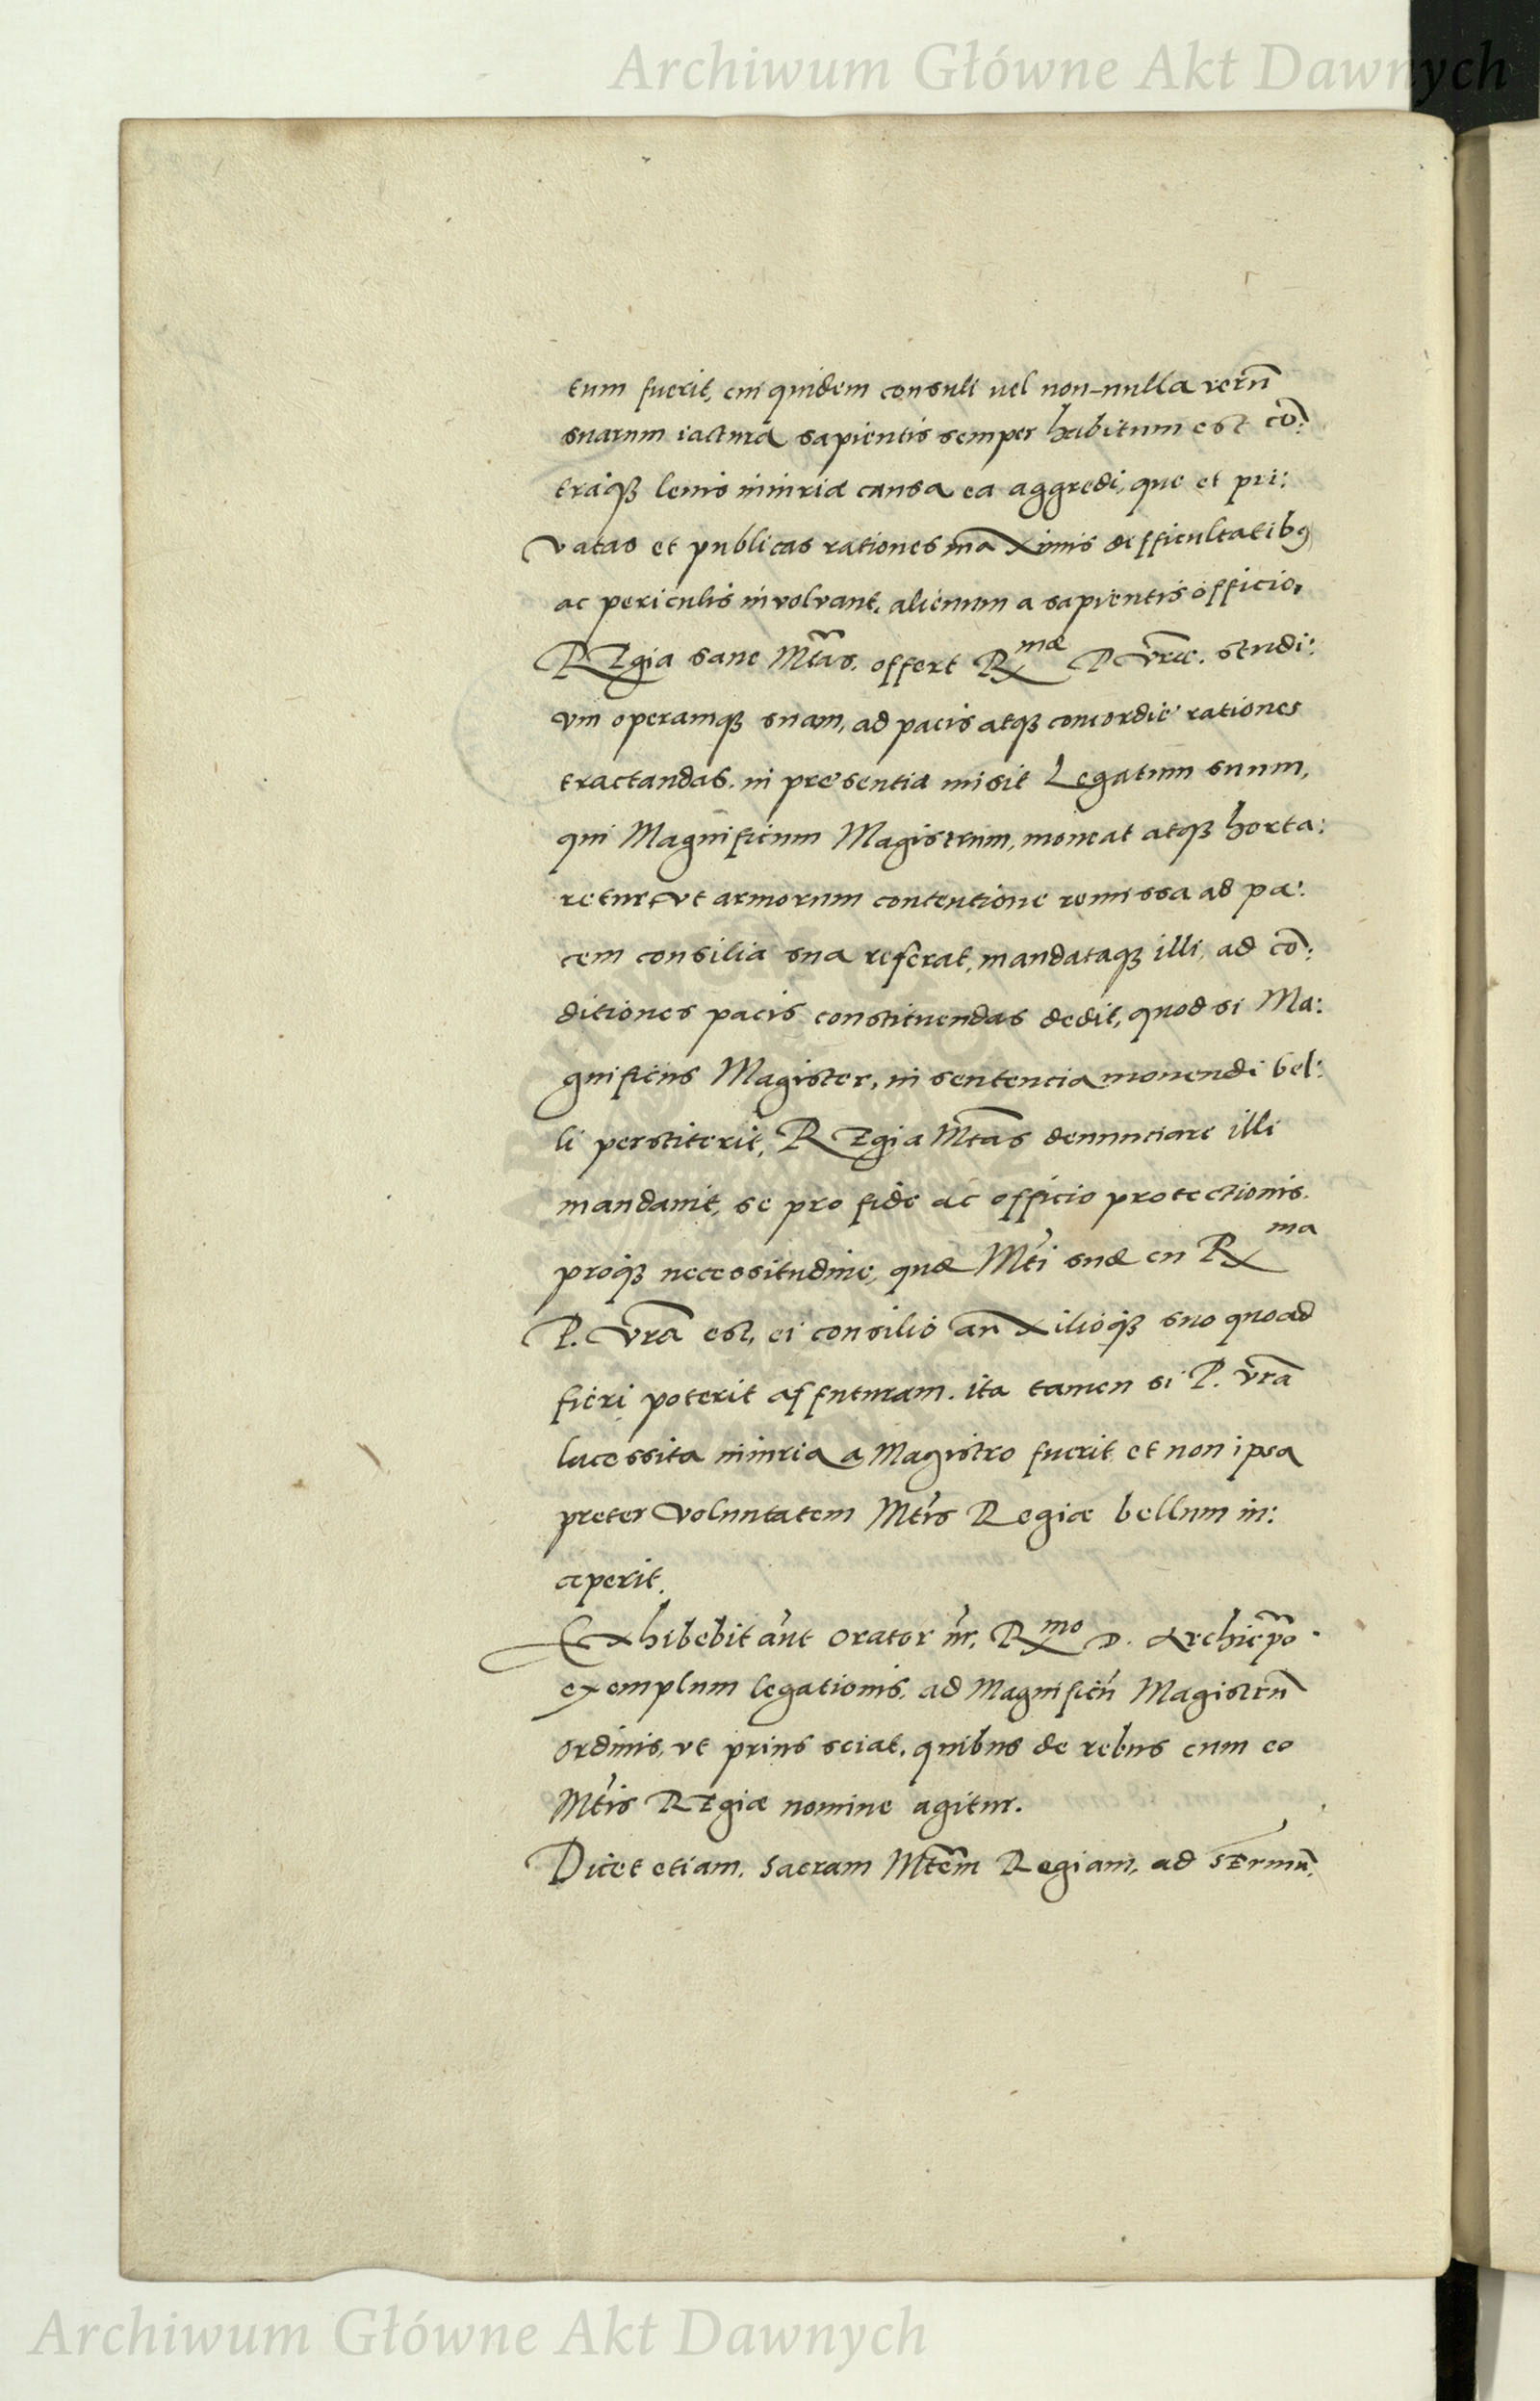 Archiwum Główne Akt Dawnych
tum fuerit, cui quidem consuli vel non-nulla rerū
suarum iactura sapientis semper habitum est cō:
traq₃ lenis iniuriæ causa ea aggredi, que et pri:
vatas et publicas rationes maximis difficultatibꝯ
ac periculis involvant, alienum a sapientis officio.
REgia sane Mtas. offert Rmæ P. Vræ. studi:
um operamq₃ suam, ad pacis atq₃ concordie rationes
tractandas. in presentia misit Legatum suum,
qui Magnificum Magistrum, moneat atq₃ horta:
retur, ut armorum contentione remissa ad pa:
cem consilia sua referat, mandataq₃ illi, ad cō:
ditiones pacis constituendas dedit, quod si Ma:
gnificus Magister, in sentencia movendi bel:
li perstiterit, REgia Mtas denunciare illi
mandavit, se pro fide ac officio protectionis.
proq₃ necessitudine, quæ Mti suæ cu Rma
P. Vra est, ei consilio auxilioq₃ suo quoad
fieri poterit affuturam. ita tamen si P. Vra
lacessita iniuria a Magistro fuerit et non ipsa
preter voluntatem Mtis Regiæ bellum in:
ceperit.
Exhibebit aut Orator nr. Rmo D. Archiepo.
exemplum legationis, ad Magnificū Magistrū
Ordinis, ut prius sciat, quibus de rebus cum eo
Mtis REgiæ nomine agitur.
Dicet etiam, Sacram Mtem Regiam, ad SErmū.
Archiwum Główne Akt Dawnych